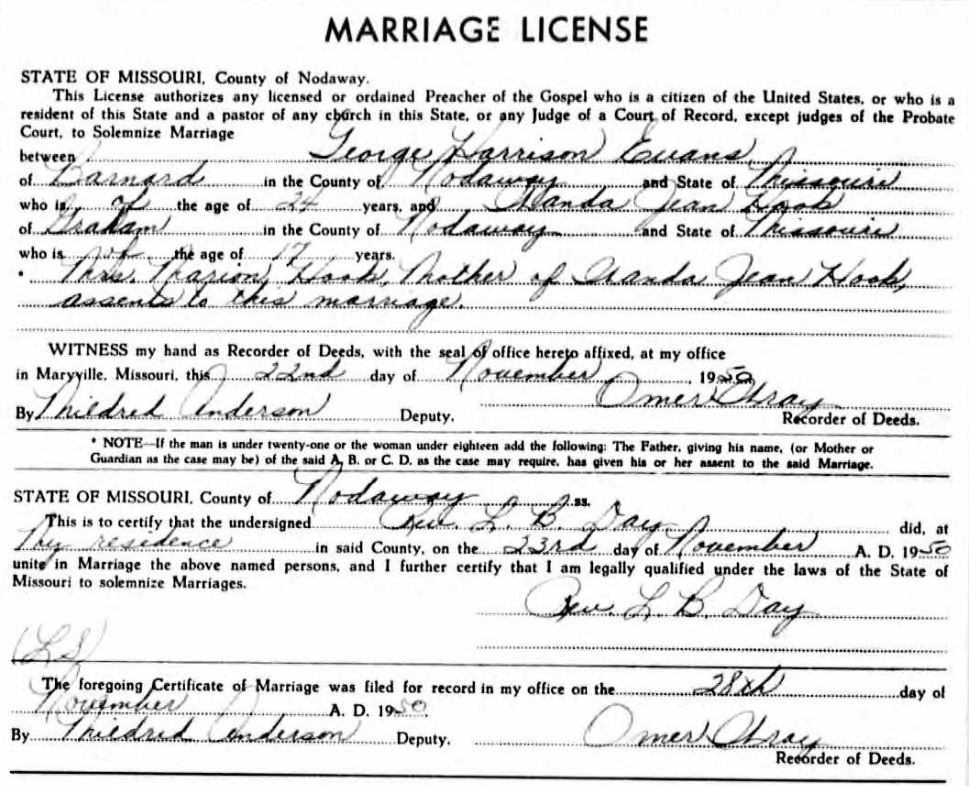 MARRIAGE LICENSE
STATE OF MISSOURI, County of Nodaway.
This License authorizes any licensed or ordained Preacher of the Gospel who is a citizen of the United States, or who is a
resident of this State and a pastor of any church in this State, or any Judge of a Court of Record, except judges of the Probate
Court, to Solemnize Marriage
between George Harrison Evans
of Barnard in the County of Nodaway and State of Missouri
who is of the age of 24 years, and Wanda Jean Hook
of Graham in the County of Nodaway and State of Missouri
who is of the age of 17 years.
* Mrs. Marion Hook, Mother of Wanda Jean Hook,
assents to this marriage.
WITNESS my hand as Recorder of Deeds, with the seal of office hereto affixed, at my office
in Maryville, Missouri, this 22nd day of November, 1950
By Mildred Anderson Deputy. Omer Wray
Recorder of Deeds.
* NOTE—If the man is under twenty-one or the woman under eighteen add the following: The Father, giving his name, (or Mother or
Guardian as the case may be) of the said A. B. or C. D. as the case may require, has given his or her assent to the said Marriage.
STATE OF MISSOURI, County of Nodaway ss.
This is to certify that the undersigned Rev. L. B. Day did, at
My residence in said County, on the 23rd day of November A. D. 1950
unite in Marriage the above named persons, and I further certify that I am legally qualified under the laws of the State of
Missouri to solemnize Marriages.
Rev. L. B. Day
(LS)
The foregoing Certificate of Marriage was filed for record in my office on the 28th day of
November A. D. 1950.
By Mildred Anderson Deputy, Omer Wray
Recorder of Deeds.